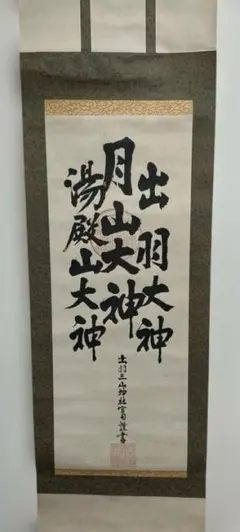 出羽大神
月山大神
湯殿山大神
出羽三山神社宮司謹書